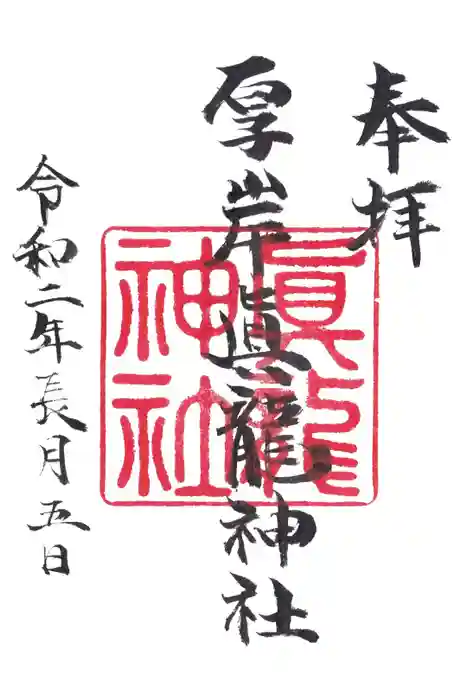 奉拝
厚岸眞龍神社
眞龍
神社
令和二年長月五日